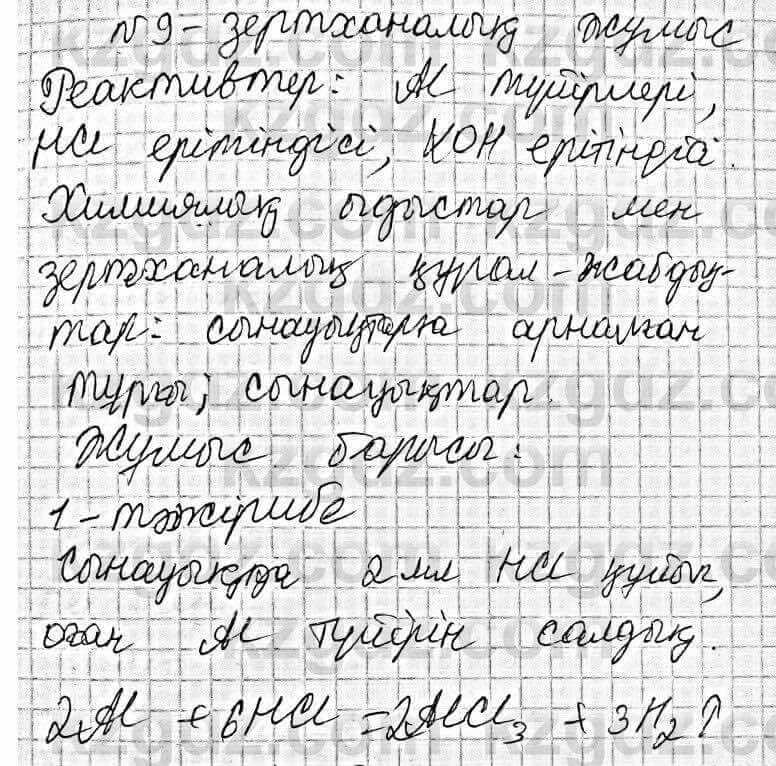 №9 - зертханалық жұмыс
Реактивтер: Al түйірлері,
HCl ерітіндісі, KOH ерітіндісі.
Химиялық ыдыстар мен
зертханалық құрал-жабдық-
тар: сынауықтарға арналған
тұрғы, сынауықтар.
Жұмыс барысы:
1-тәжірибе
Сынауыққа 2 мл HCl құйып,
оған Al түйірін салдық.
2Al + 6HCl = 2AlCl₃ + 3H₂↑
kzgdz.com